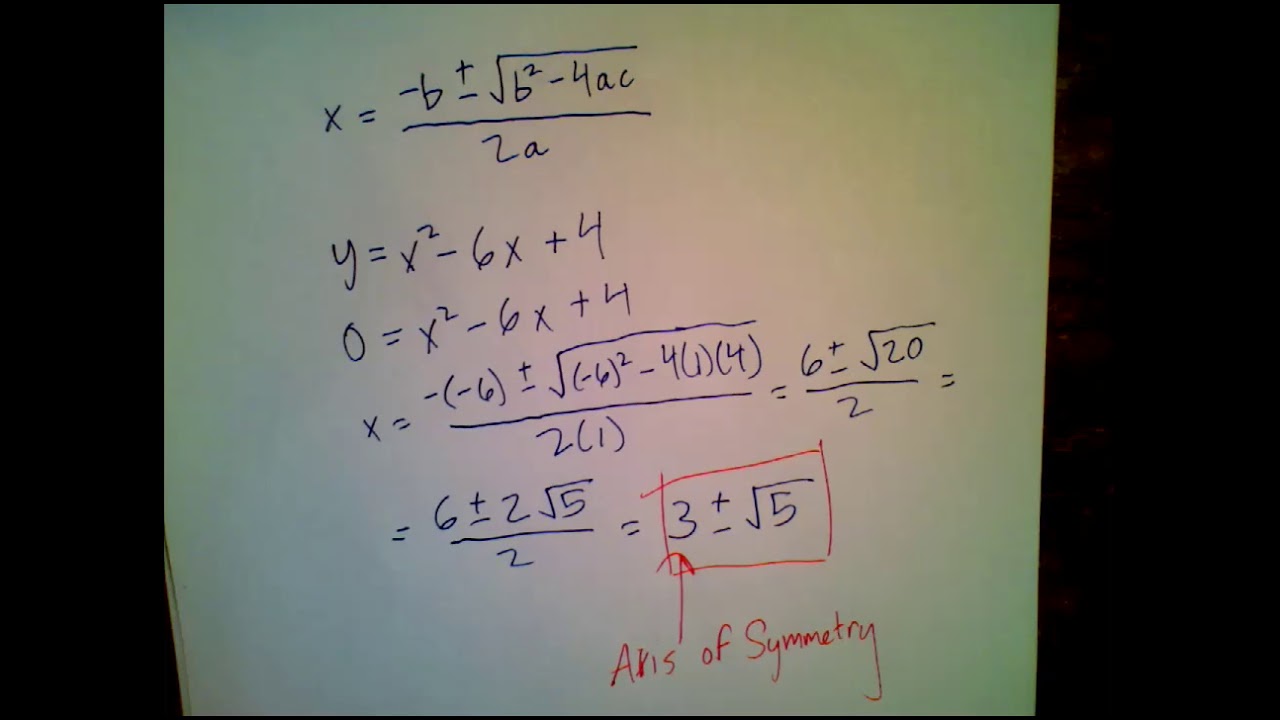 x = (-b ± √(b² - 4ac)) / 2a
y = x² - 6x + 4
0 = x² - 6x + 4
x = (-(-6) ± √((-6)² - 4(1)(4))) / 2(1) = (6 ± √20) / 2 =
= (6 ± 2√5) / 2 = 3 ± √5
Axis of Symmetry